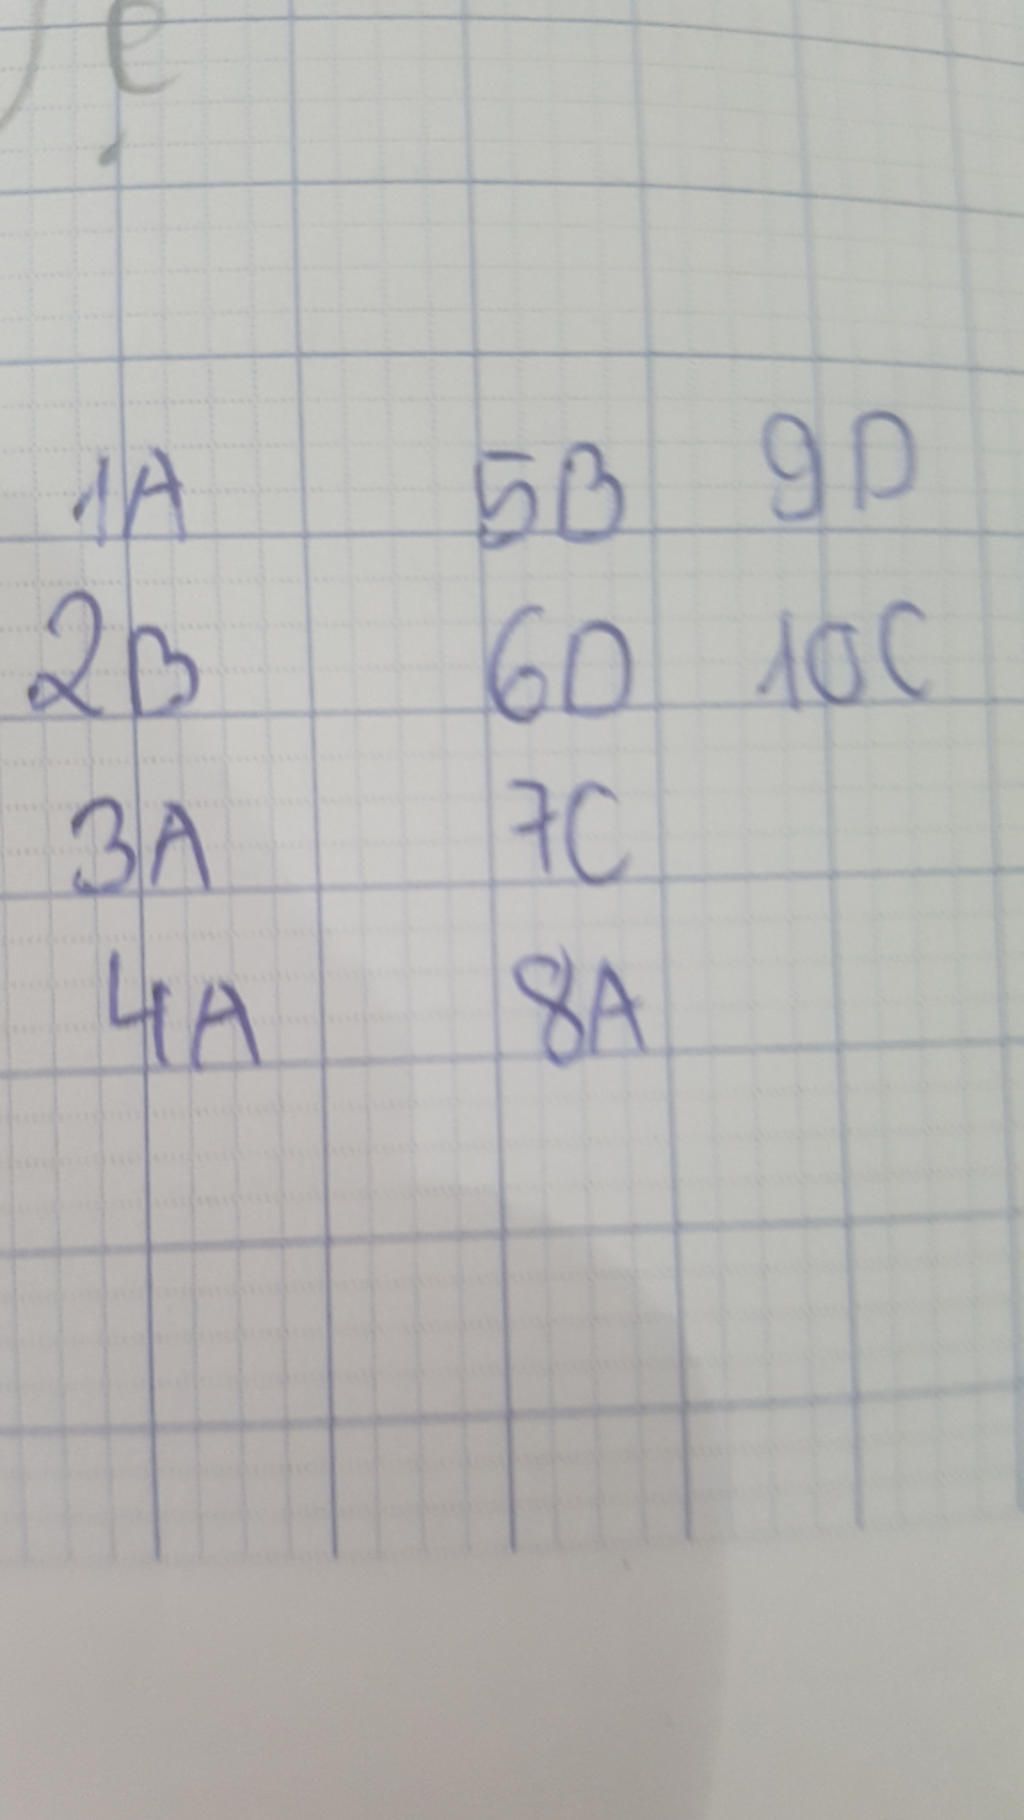 e
1A 5B 9D
2B 6D 10C
3A 7C
4A 8A